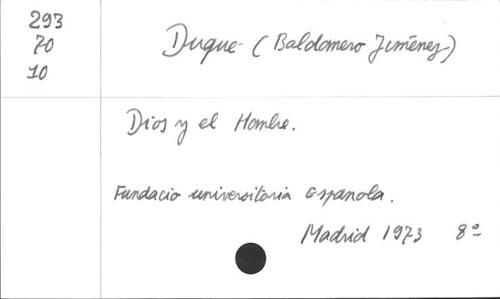 293
70
10
Duque (Baldomero Jiménez)
Dios y el Hombre.
Fundacio universitaria Española.
Madrid 1973 8º